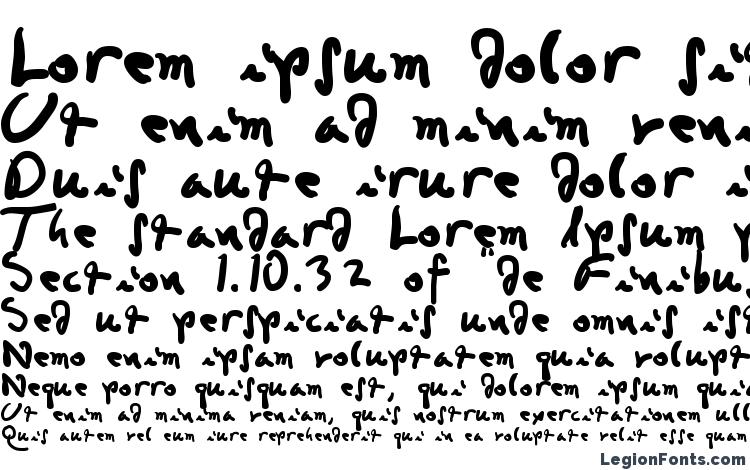 Lorem ipsum dolor sit
Ut enim ad minim veni
Duis aute irure dolor i
The standard Lorem Ipsum p
Section 1.10.32 of "de Finibu
Sed ut perspiciatis unde omnis ist
Nemo enim ipsam voluptatem quia volupt
Neque porro quisquam est, qui dolorem ipsum quia
Ut enim ad minima veniam, quis nostrum exercitationem ull
Quis autem vel eum iure reprehenderit qui in ea voluptate velit esse quam
LegionFonts.com